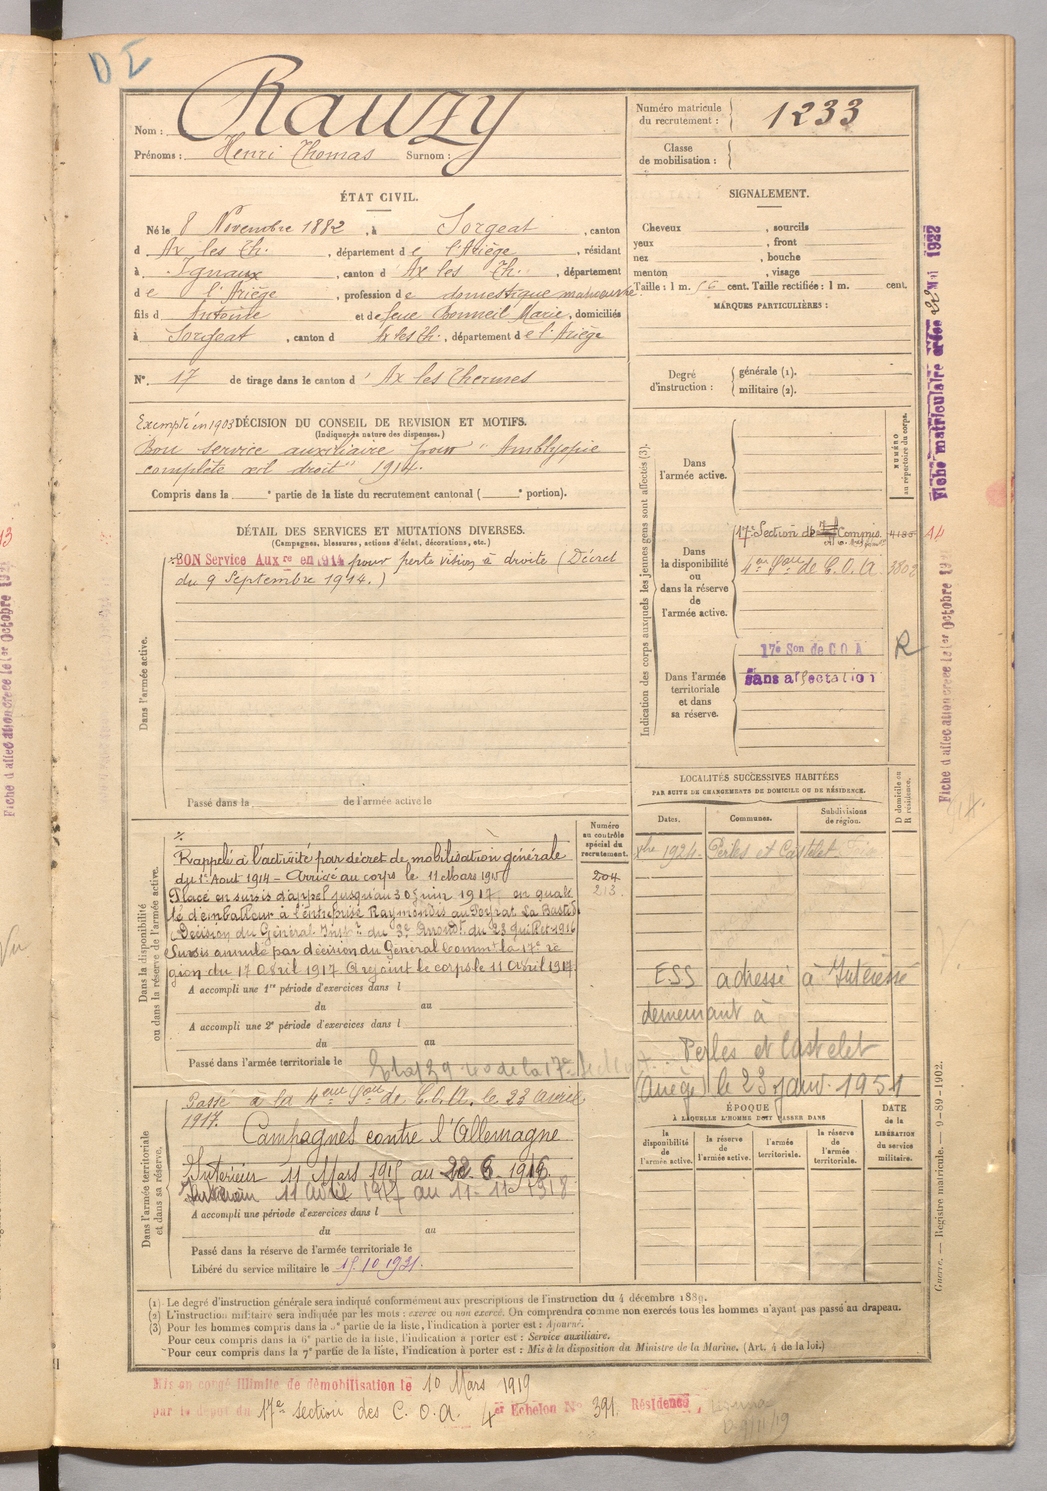 D I
Nom : Rauzy
Prénoms : Henri Thomas Surnom :
Numéro matricule du recrutement : 1233
Classe de mobilisation :
ÉTAT CIVIL.
Né le 8 Novembre 1882, à Sorgeat, canton
d Ax les Th., département de l'Ariège, résidant
à Ignaux, canton d'Ax les Th., département
de l'Ariège, profession de domestique manœuvre
fils d Antoine et de feue Bonneil Marie, domiciliés
à Sorgeat, canton d Ax les Th., département de l'Ariège
N° 17 de tirage dans le canton d'Ax les Thermes
SIGNALEMENT.
Cheveux , sourcils
yeux , front
nez , bouche
menton , visage
Taille : 1 m. 56 cent. Taille rectifiée : 1 m. cent.
MARQUES PARTICULIÈRES :
Degré d'instruction : générale (1).
militaire (2).
Exempté en 1903 DÉCISION DU CONSEIL DE REVISION ET MOTIFS.
(Indiquer la nature des dispenses.)
Bon service auxiliaire pour "Amblyopie
complète œil droit" 1914.
Compris dans la ° partie de la liste du recrutement cantonal ( ° portion).
DÉTAIL DES SERVICES ET MUTATIONS DIVERSES.
(Campagnes, blessures, actions d'éclat, décorations, etc.)
Dans l'armée active.
BON Service Aux re en 1914 pour perte vision à droite (Décret
du 9 Septembre 1914.)
Passé dans la de l'armée active le
Indication des corps auxquels les jeunes gens sont affectés (3).
NUMÉRO au répertoire du corps.
Dans l'armée active.
Dans la disponibilité ou dans la réserve de l'armée active.
17e Section de Commis
4eme Son de C.O.A. 3802
Dans l'armée territoriale et dans sa réserve.
17e Son de C O A
Sans affectation
R
LOCALITÉS SUCCESSIVES HABITÉES
PAR SUITE DE CHANGEMENTS DE DOMICILE OU DE RÉSIDENCE.
D domicile ou R résidence.
Dates. Communes. Subdivisions de région.
1924 Perles et Castelet Foix
ESS adressé à Intéressé
demeurant à
Perles et Castelet
(Ariège) le 23 janv. 1951
Numéro au contrôle spécial du recrutement.
204
213
Dans la disponibilité ou dans la réserve de l'armée active.
Rappelé à l'activité par décret de mobilisation générale
du 1er Aout 1914 - Arrivé au corps le 11 Mars 1915
Placé en sursis d'appel jusqu'au 30 juin 1917 en quali
té d'emballeur à l'entreprise Raymondis au Peyrat La Bastide
(Décision du Général Inspr du 3e Arrondt du 23 juillet 1916
Sursis annulé par décision du Général Commt la 17e ré
gion du 17 Avril 1917 A rejoint le corps le 11 Avril 1917.
A accompli une 1re période d'exercices dans l
du au
A accompli une 2e période d'exercices dans l
du au
Passé dans l'armée territoriale le
Dans l'armée territoriale et dans sa réserve.
Passé à la 4eme Son de C.O.A. le 23 Avril
1917.
Campagnes contre l'Allemagne
Intérieur 11 Mars 1915 au 22.6.1916
Intérieur 11 Avril 1917 au 11-11-1918
A accompli une période d'exercices dans l
du au
Passé dans la réserve de l'armée territoriale le
Libéré du service militaire le 15.10.1931.
ÉPOQUE
À LAQUELLE L'HOMME DOIT PASSER DANS
DATE de la LIBÉRATION du service militaire.
la disponibilité de l'armée active. la réserve de l'armée active. l'armée territoriale. la réserve de l'armée territoriale.
(1) Le degré d'instruction générale sera indiqué conformément aux prescriptions de l'instruction du 4 décembre 1889.
(2) L'instruction militaire sera indiquée par les mots : exercé ou non exercé. On comprendra comme non exercés tous les hommes n'ayant pas passé au drapeau.
(3) Pour les hommes compris dans la 5e partie de la liste, l'indication à porter est : Ajourné.
Pour ceux compris dans la 6e partie de la liste, l'indication à porter est : Service auxiliaire.
Pour ceux compris dans la 7e partie de la liste, l'indication à porter est : Mis à la disposition du Ministre de la Marine. (Art. 4 de la loi.)
Mis en congé illimité de démobilisation le 10 Mars 1919
par le dépôt du 17e section des C.O.A. 4er Echelon N° 391 Résidence
Fiche matriculaire créée 22 Mai 1922
Fiche d'affectation créée le 1er Octobre 19
Guerre. — Registre matricule. — 9-89-1902.